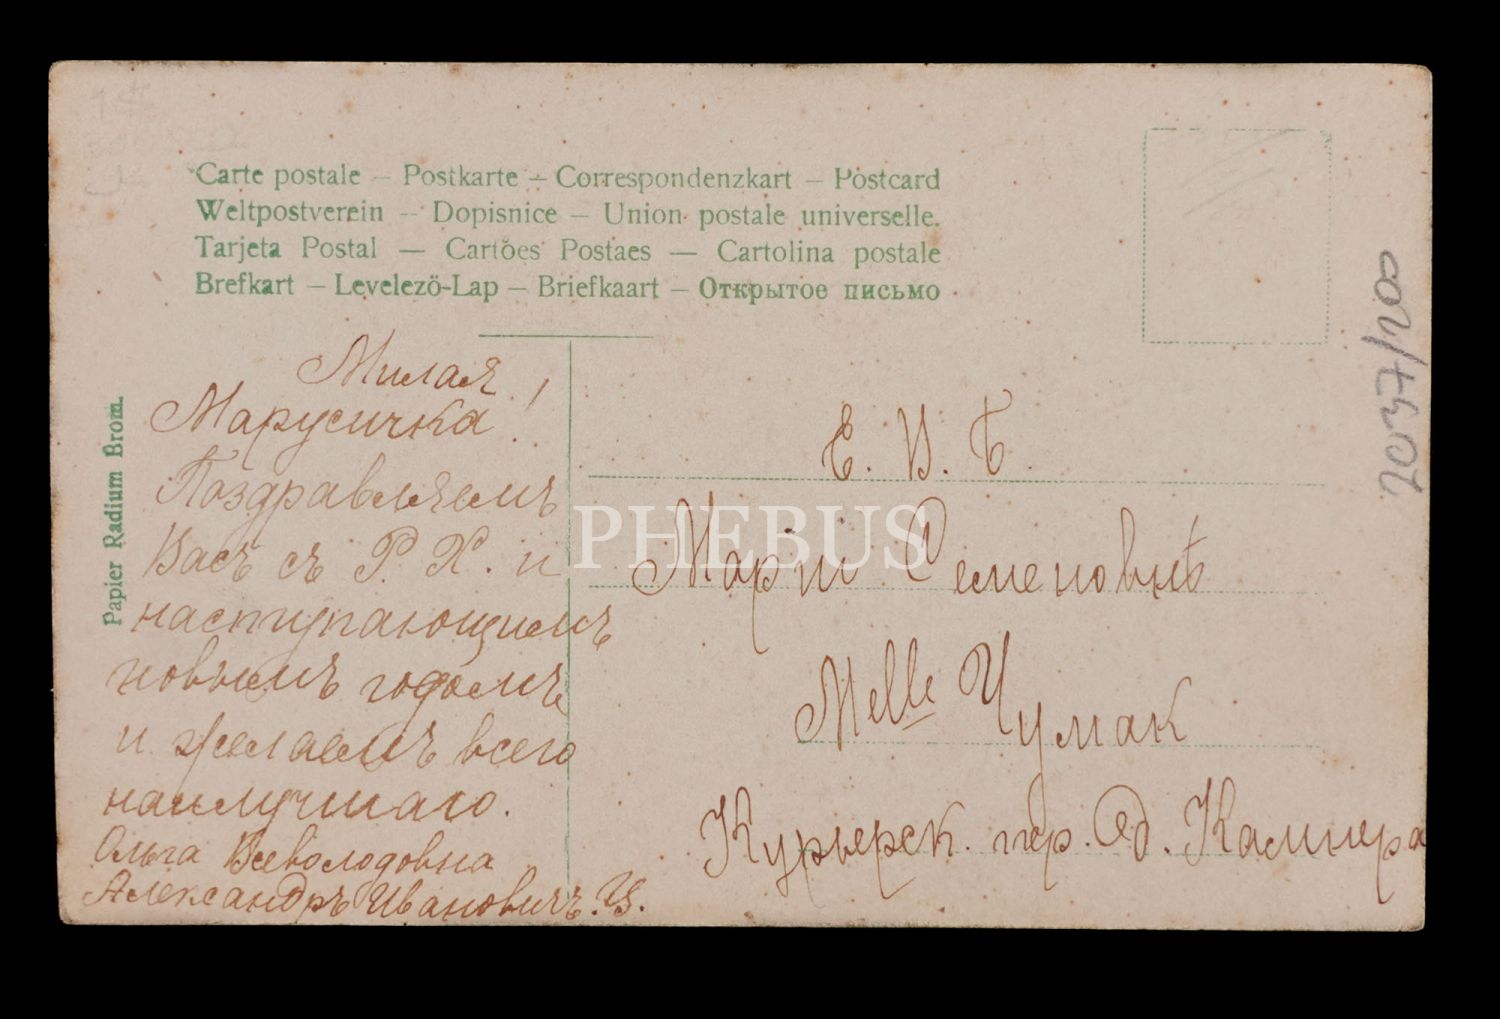 Carte postale – Postkarte – Correspondenzkart – Postcard
Weltpostverein – Dopisnice – Union postale universelle.
Tarjeta Postal — Cartões Postaes — Cartolina postale
Brefkart – Levelező-Lap – Briefkaart – Открытое письмо
Papier Radium Brom.
Милая
Марусичка!
Поздравляемъ
Васъ съ Р. Х. и
наступающимъ
новымъ годомъ
и желаемъ всего
наилучшаго.
Ольга Всеволодовна
Александръ Ивановичъ. Ц.
Е. В. Б.
Маріи Семеновнѣ
Melle Чумак
Курьерск. пер. д. Камнера
PHEBUS